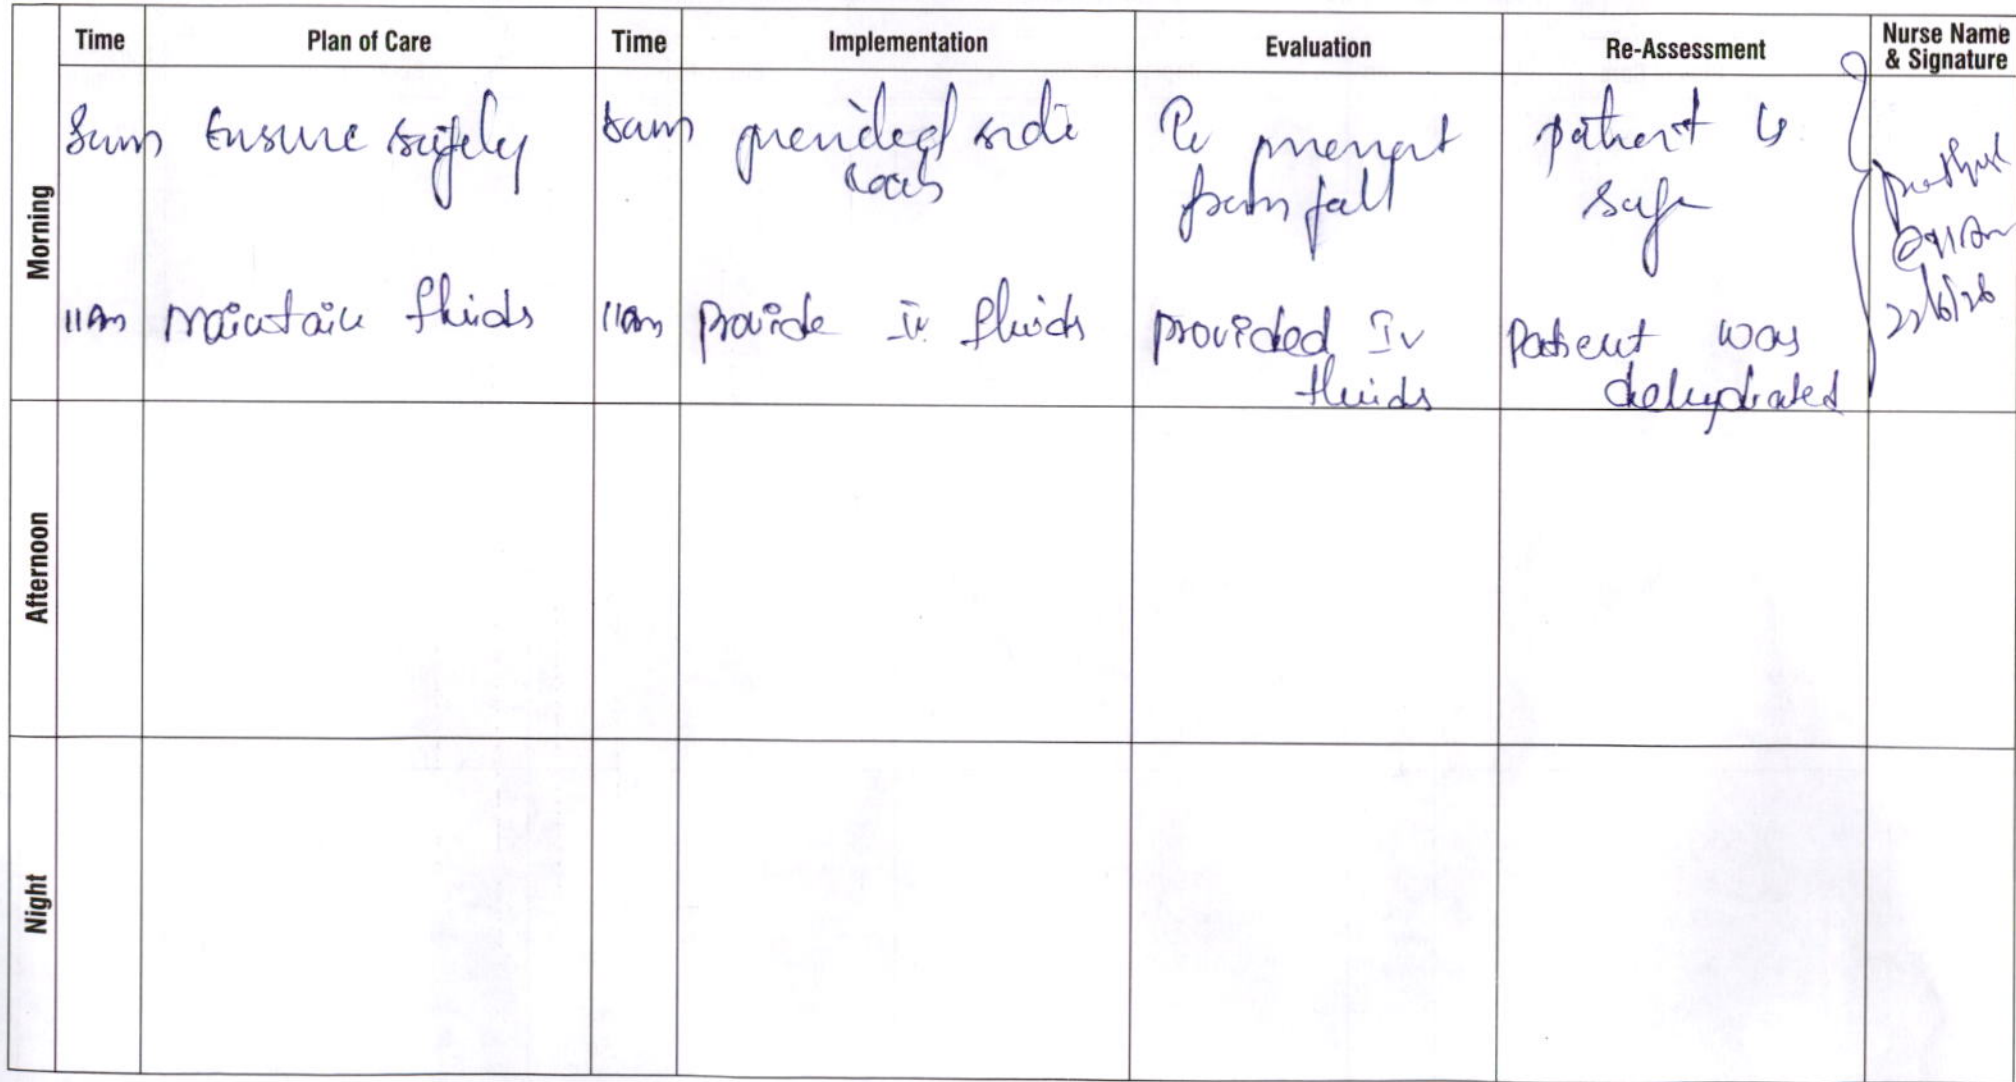 Time Plan of Care Time Implementation Evaluation Re-Assessment Nurse Name
& Signature
Morning
8am Ensure safety 8am provided side to prevent patient is
from fall safe
11am maintain fluids 11am provide IV fluids provided IV Patient was
fluids dehydrated
22/6/26
Afternoon
Night